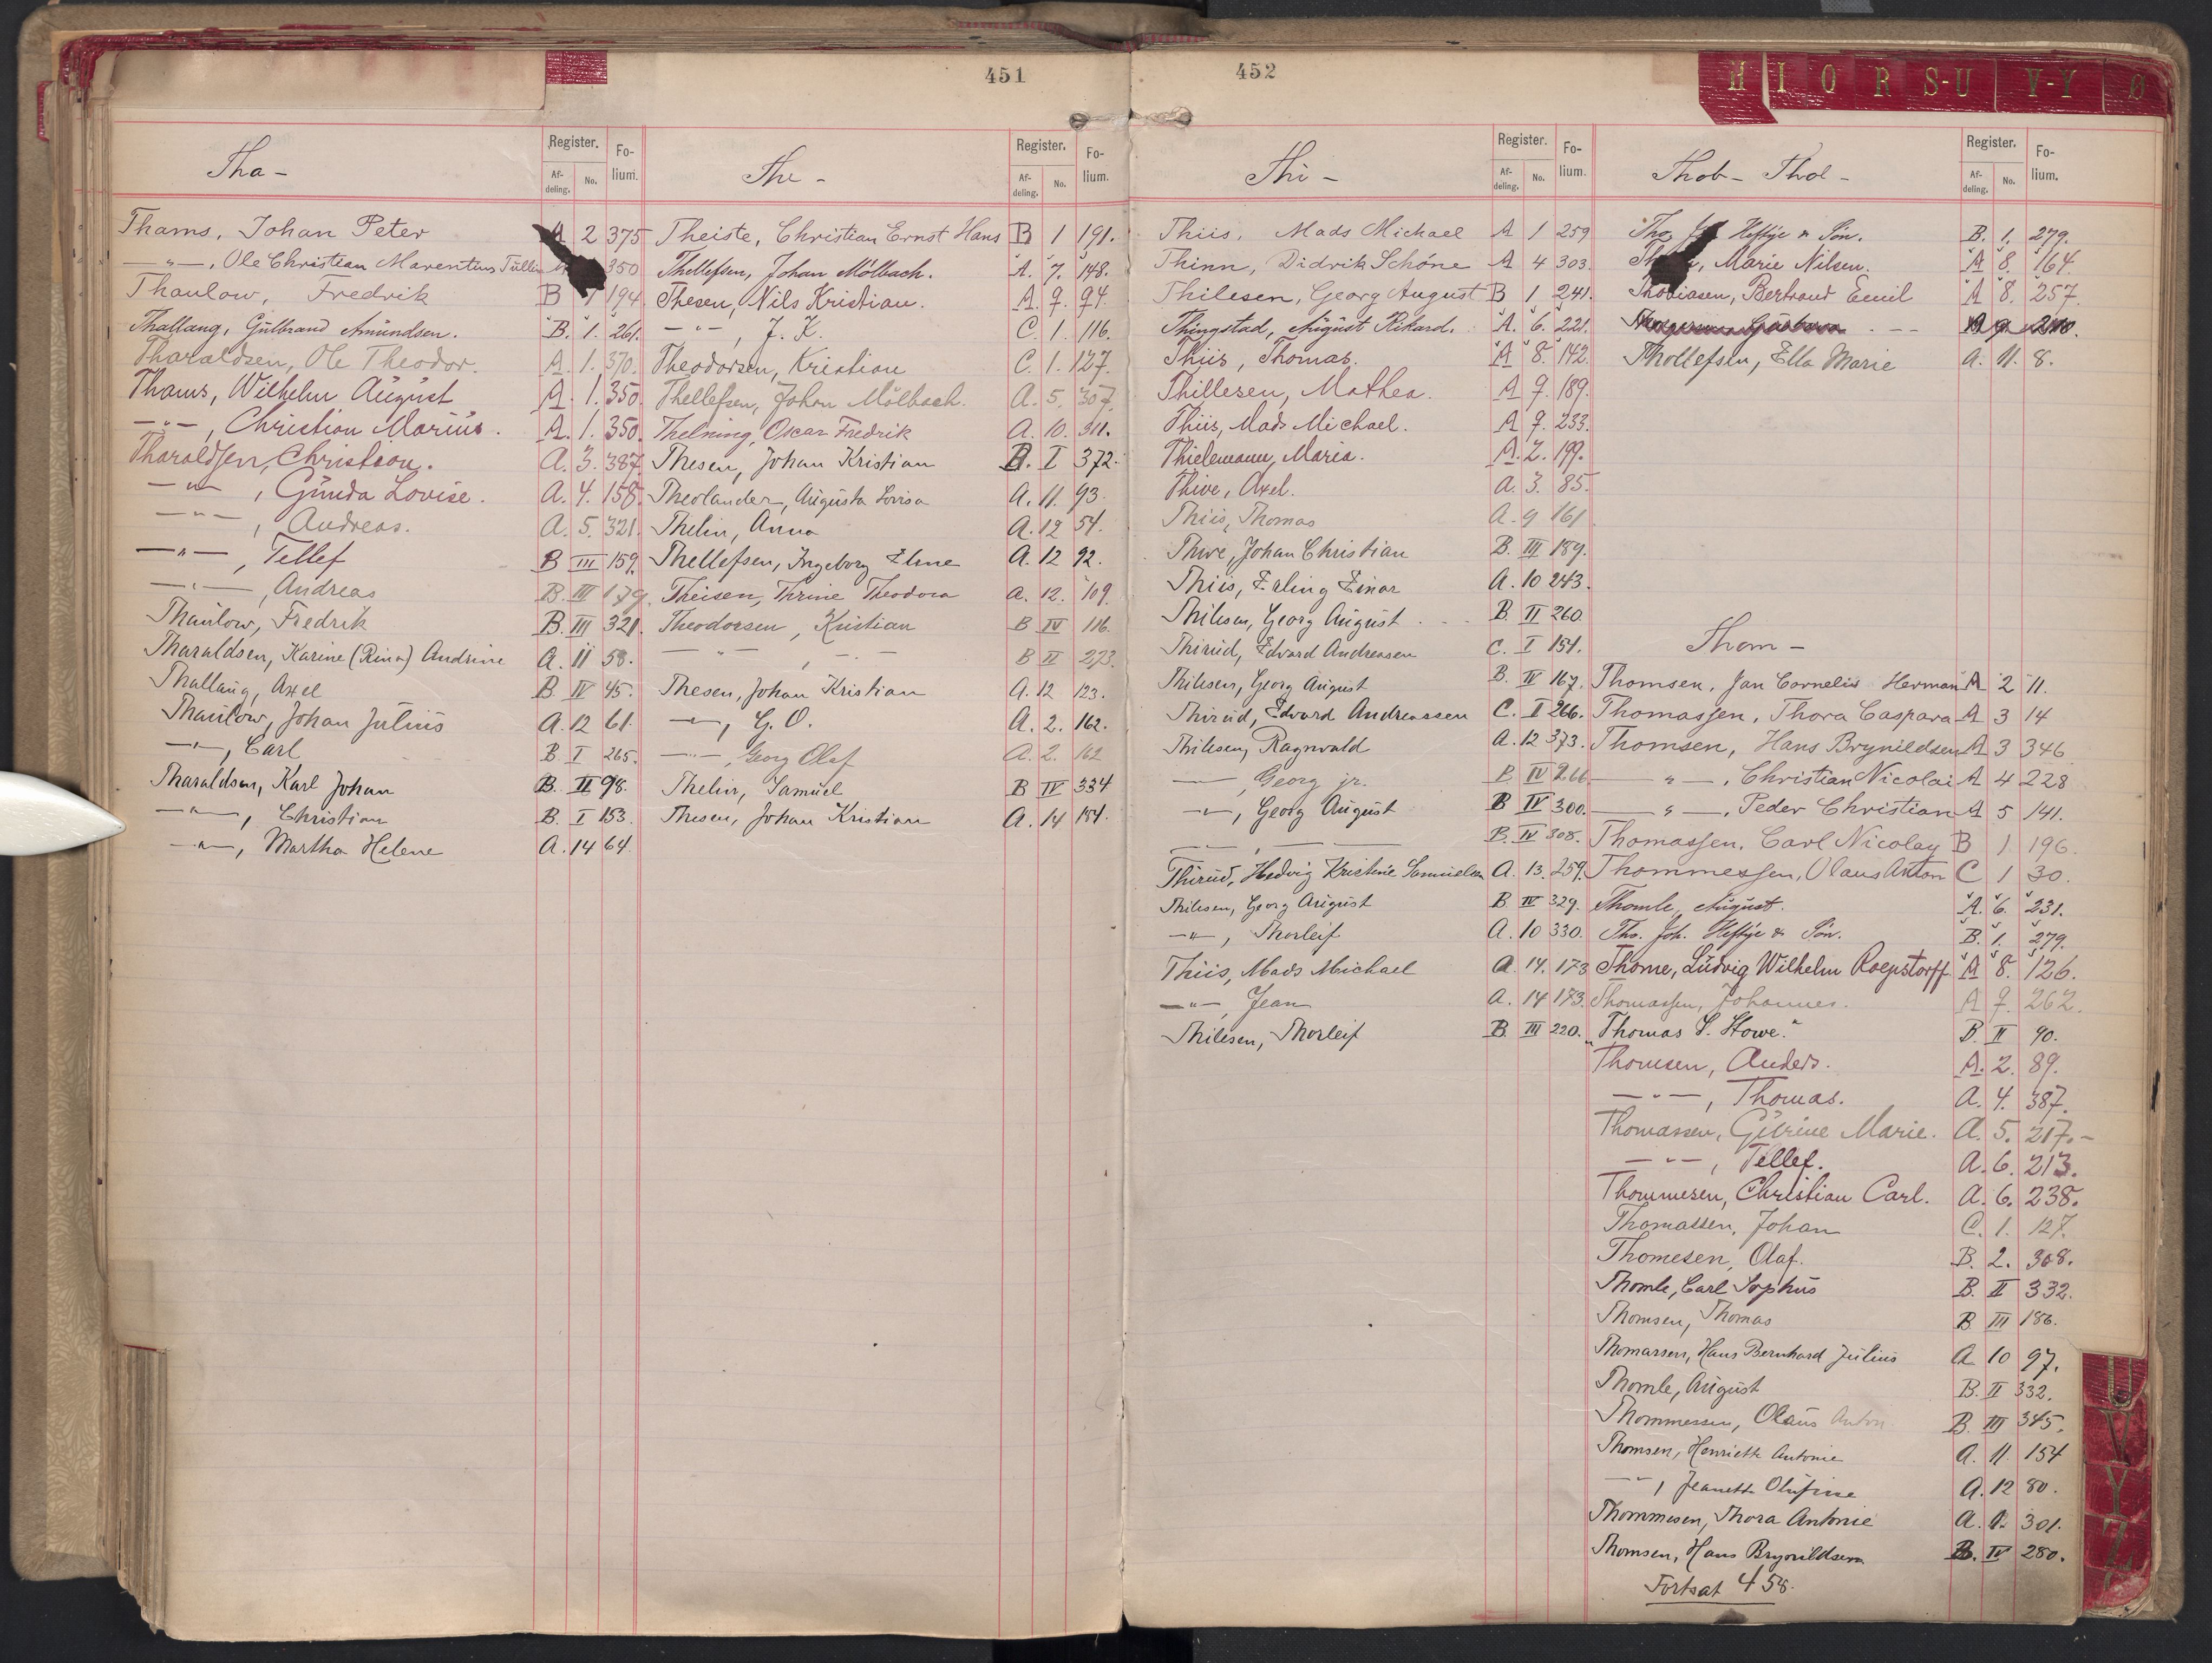 451
Tha-
Register.
Af-deling.
No.
Fo-lium.
Thams, Johan Peter A 2 375
—"—, Ole Christian Marentius Tullin 350
Thaulow, Fredrik B 1 194
Thallang, Gulbrand Amundsen. B. 1. 261.
Tharaldsen, Ole Theodor. A. 1. 370.
Thams, Wilhelm August A. 1. 350.
—"—, Christian Marius. A. 1. 350.
Tharaldsen, Christian. A. 3. 387.
—"—, Gunda Lovise. A. 4. 158.
—"—, Andreas. A. 5. 321.
—"—, Tellef B III 159.
—"—, Andreas B. III 179.
Thaulow, Fredrik B. III 321.
Tharaldsen, Karine (Rina) Andrine A. 11 58.
Thallaug, Axel B. IV 45.
Thaulow, Johan Julius A. 12 61.
—"—, Carl B. I 265.
Tharaldsen, Karl Johan B. II 98.
—"—, Christian B. I 153.
—"—, Martha Helene A. 14 64.
The-
Register.
Af-deling.
No.
Fo-lium.
Theiste, Christian Ernst Hans B 1 191.
Thellefsen, Johan Mölbach. A. 7. 148.
Thesen, Nils Kristian. A. 9. 94.
—"—, J. K. C. 1. 116.
Theodorsen, Kristian C. 1. 127.
Thellefsen, Johan Mölbach. A. 5. 307.
Thelning, Oscar Fredrik A. 10. 311.
Thesen, Johan Kristian B. I 372.
Theolander, Augusta Lovisa A. 11. 93.
Thelin, Anna A. 12 54.
Thellefsen, Ingeborg Eline A. 12 92.
Theisen, Thrine Theodora A. 12. 109.
Theodorsen, Kristian B IV 116.
—"—, —"— B II 273.
Thesen, Johan Kristian A. 12 123.
—"—, G. O. A. 2. 162.
—"—, Georg Olaf A. 2. 162
Thelin, Samuel B IV 334
Thesen, Johan Kristian A. 14 184.
452
H I O R S-U V-Y Ø
Thi-
Register.
Af-deling.
No.
Fo-lium.
Thiis, Mads Michael A 1 259
Thinn, Didrik Schöne A 4 303.
Thilesen, Georg August B 1 241.
Thingstad, August Rikard. A. 6. 221.
Thiis, Thomas. A 8. 142.
Thillesen, Mathea. A 9. 189.
Thiis, Mads Michael. A 9. 233.
Thielemann, Maria. A. 2. 199.
Thive, Axel. A. 3. 85.
Thiis, Thomas A. 9 161
Thive, Johan Christian B. III 189.
Thiis, Erling Einar A. 10 243.
Thilesen, Georg August B. II 260.
Thirud, Edvard Andreasen C. I 154.
Thilesen, Georg August B. IV 167.
Thirud, Edvard Andreassen C. I 266.
Thilesen, Ragnvald A. 12 373.
—"—, Georg jr. B IV 266
—"—, Georg August B IV 300.
—"—, —"— B. IV 308.
Thirud, Hedvig Kristine Samuelsen A. 13. 259.
Thilesen, Georg August B. IV 329.
—"—, Thorleif A. 10 330.
Thiis, Mads Michael A. 14. 173
—"—, Jean A. 14 173.
Thilesen, Thorleif B. III 220.
Thob- Thol-
Register.
Af-deling.
No.
Fo-lium.
Tho Heftye & Søn. B. 1. 279.
Marie Nilsen. A 8. 164.
Thobiasen, Bertrand Emil A 8. 257.
A 9
Thollefsen, Ella Marie A. 11. 8.
Thom-
Thomsen, Jan Cornelis Herman A 2 11.
Thomassen, Thora Caspara A 3 14
Thomsen, Hans Brynildsen A 3 346
—"—, Christian Nicolai A 4 228
—"—, Peder Christian A 5 141.
Thomassen, Carl Nicolay B 1 196.
Thommessen, Olaus Anton C 1 30.
Thomle, August. A. 6. 231.
Ths. Joh. Heftye & Søn. B. 1. 279.
Thome, Ludvig Wilhelm Roepstorff A 8. 126.
Thomassen, Johannes. A 9. 262.
"Thomas S. Stowe." B II 90.
Thomsen, Anders. A. 2. 89.
—"—, Thomas. A. 4. 387.
Thomassen, Gurine Marie. A. 5. 217.
—"—, Tellef. A. 6. 213.
Thommesen, Christian Carl. A. 6. 238.
Thomassen, Johan C. 1. 127.
Thomesen, Olaf. B. 2. 308.
Thomle, Carl Sophus B. II 332.
Thomsen, Thomas B III 186.
Thomassen, Hans Bernhard Julius A. 10 97.
Thomle, August B. II 332.
Thommessen, Olaus Anton B. III 345.
Thomsen, Henriette Antonie A. 11. 154
—"—, Jeanette Olufine A. 12 80.
Thommesen, Thora Antonie A. 12 301.
Thomsen, Hans Brynildsen B. IV 280.
Fortsat 458.
U V Y Z